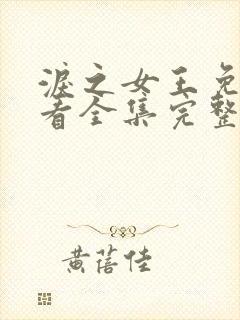 淚之女王免
看全集完整
黄蓓佳